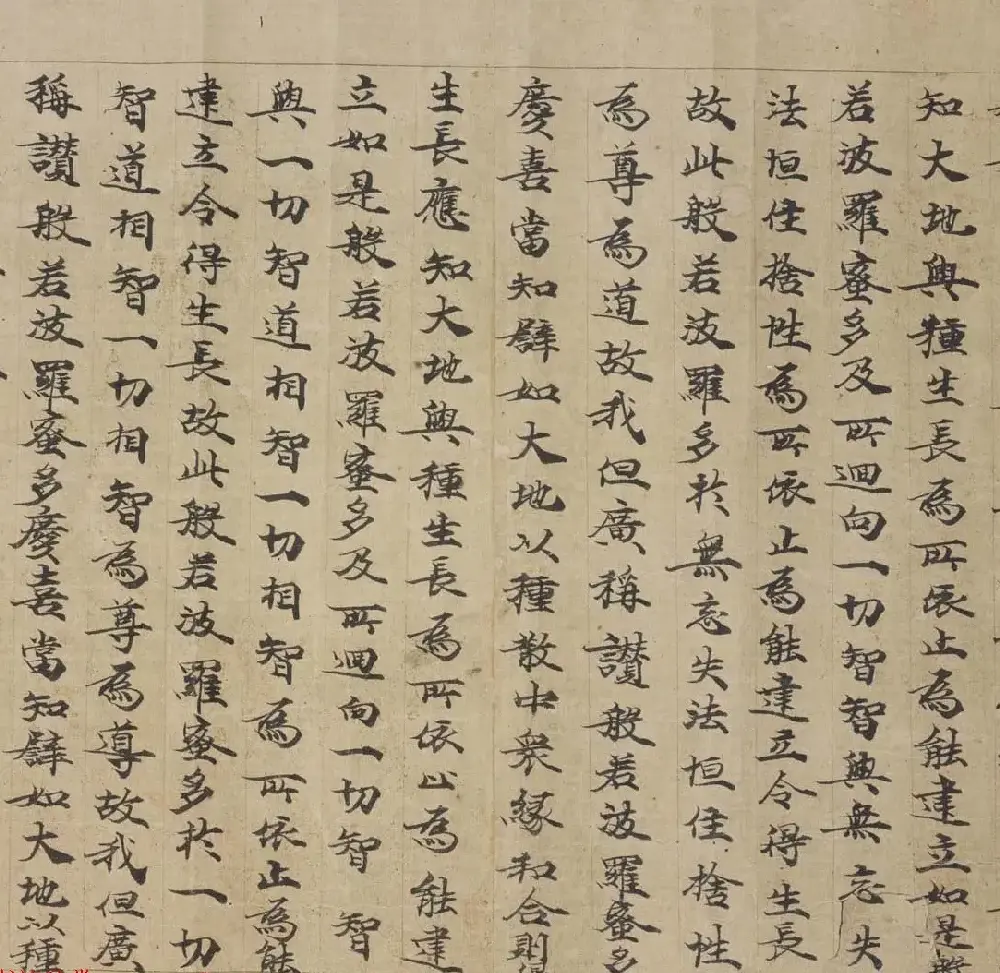 知大地與種生長為所依止為能建立如是般
若波羅蜜多及所迴向一切智智與無忘失
法恒住捨性為所依止為能建立令得生長
故此般若波羅多於無忘失法恒住捨性
為尊為道故我但廣稱讚般若波羅蜜多
慶喜當知譬如大地以種散中衆緣和合則得
生長應知大地與種生長為所依止為能建
立如是般若波羅蜜多及所迴向一切智智
與一切智道相智一切相智為所依止為能
建立令得生長故此般若波羅蜜多於一切
智道相智一切相智為尊為導故我但廣
稱讚般若波羅蜜多慶喜當知譬如大地以種